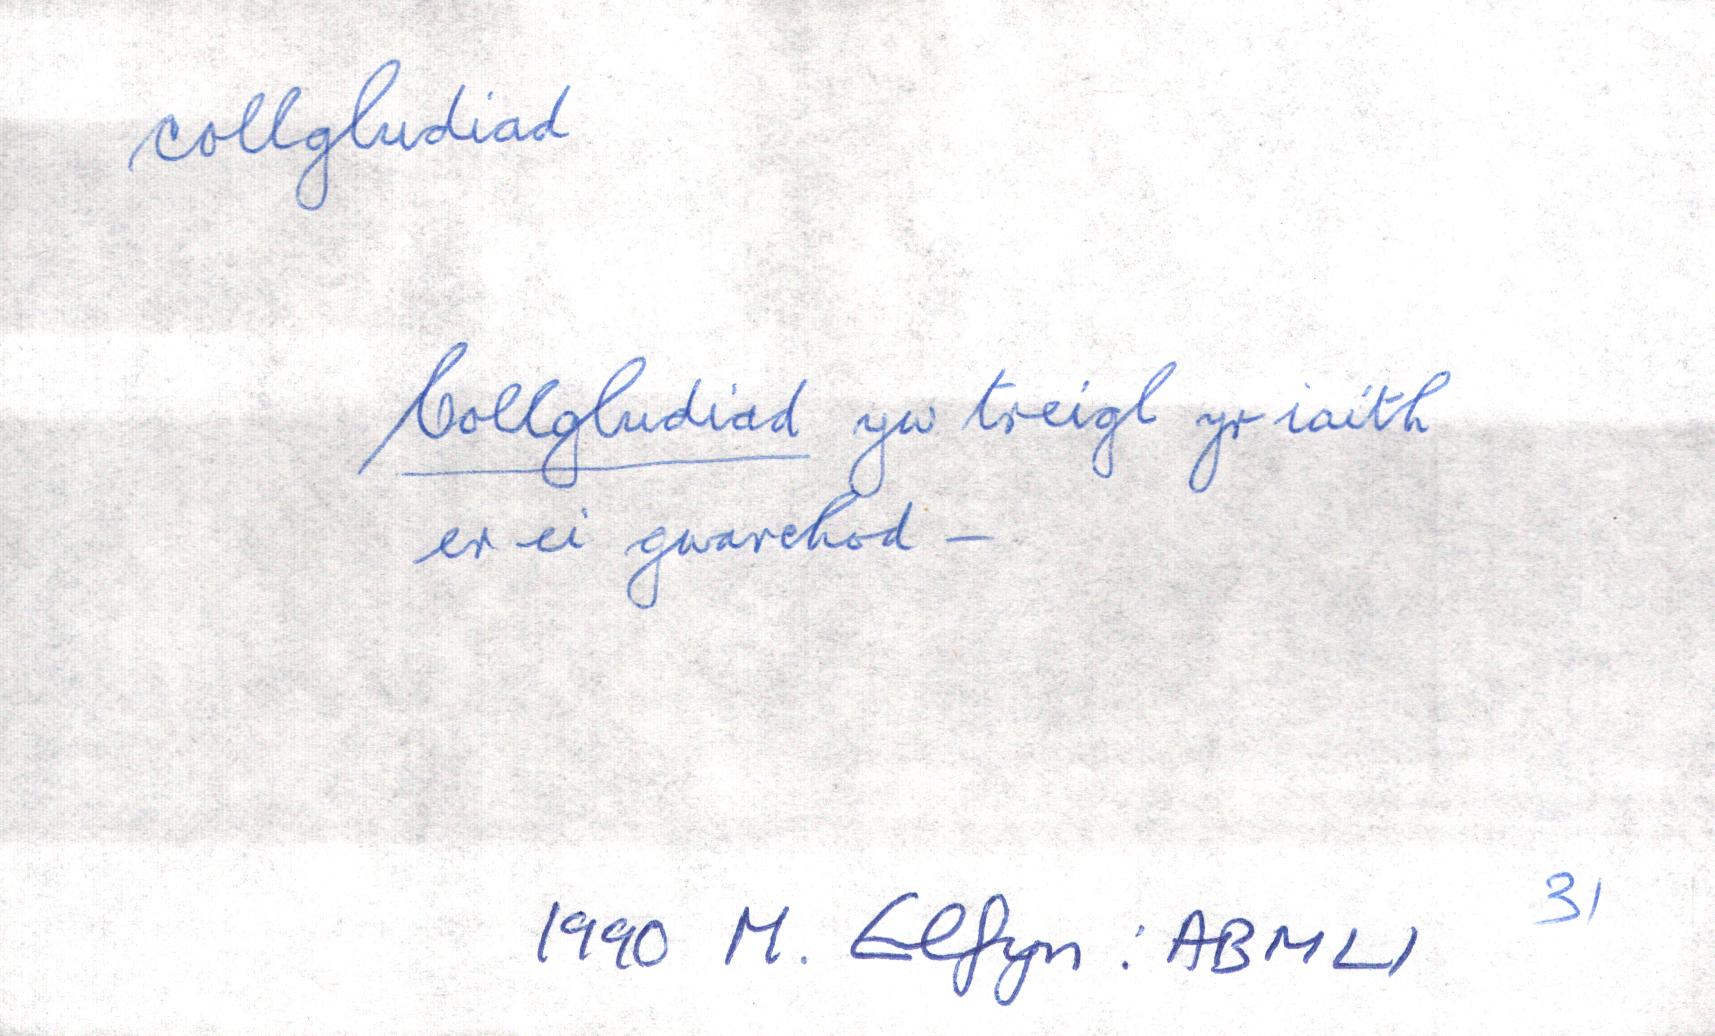 collgludiad
Collgludiad yw treigl yr iaith
er ei gwarchod –
31
1990 M. Elfyn : ABMLl